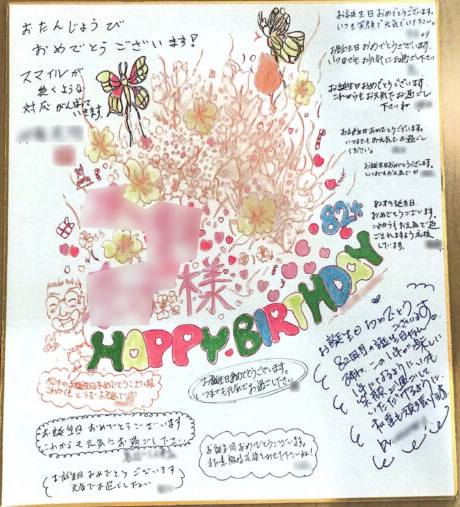 おたんじょうび
おめでとうございます!
スマイルが
続くような
対応がんばって
いきます
お誕生日おめでとうございます。
いつも笑顔で元気でいたい。
お誕生日おめでとうございます。
いつまでもお元気でお過ごし下さい
お誕生日おめでとうございます。
これからもお元気でお過ごし
下さいね
お誕生日おめでとうございます。
いつまでもお元気でお過ごし
ください。
お誕生日おめでとうございます。
82才お誕生日
おめでとうございます。
これからも元気で過
ごされますよう応援
しています。
82才
様
HAPPY BIRTHDAY
お誕生日おめでとう
ございます。
82回目の誕生日ですね
この1年が楽しい
年になるように、いつも
笑顔で過ごして
いただけるように
私達も頑張ります
by
お誕生日おめでとうございます。
お誕生日おめでとうございます。
いつまでも元気でお過ごし下さい。
お誕生日おめでとうございます
これからも元気にお過ごし下さい
お誕生日おめでとうございます。
お誕生日おめでとうございます
元気でお過ごし下さい